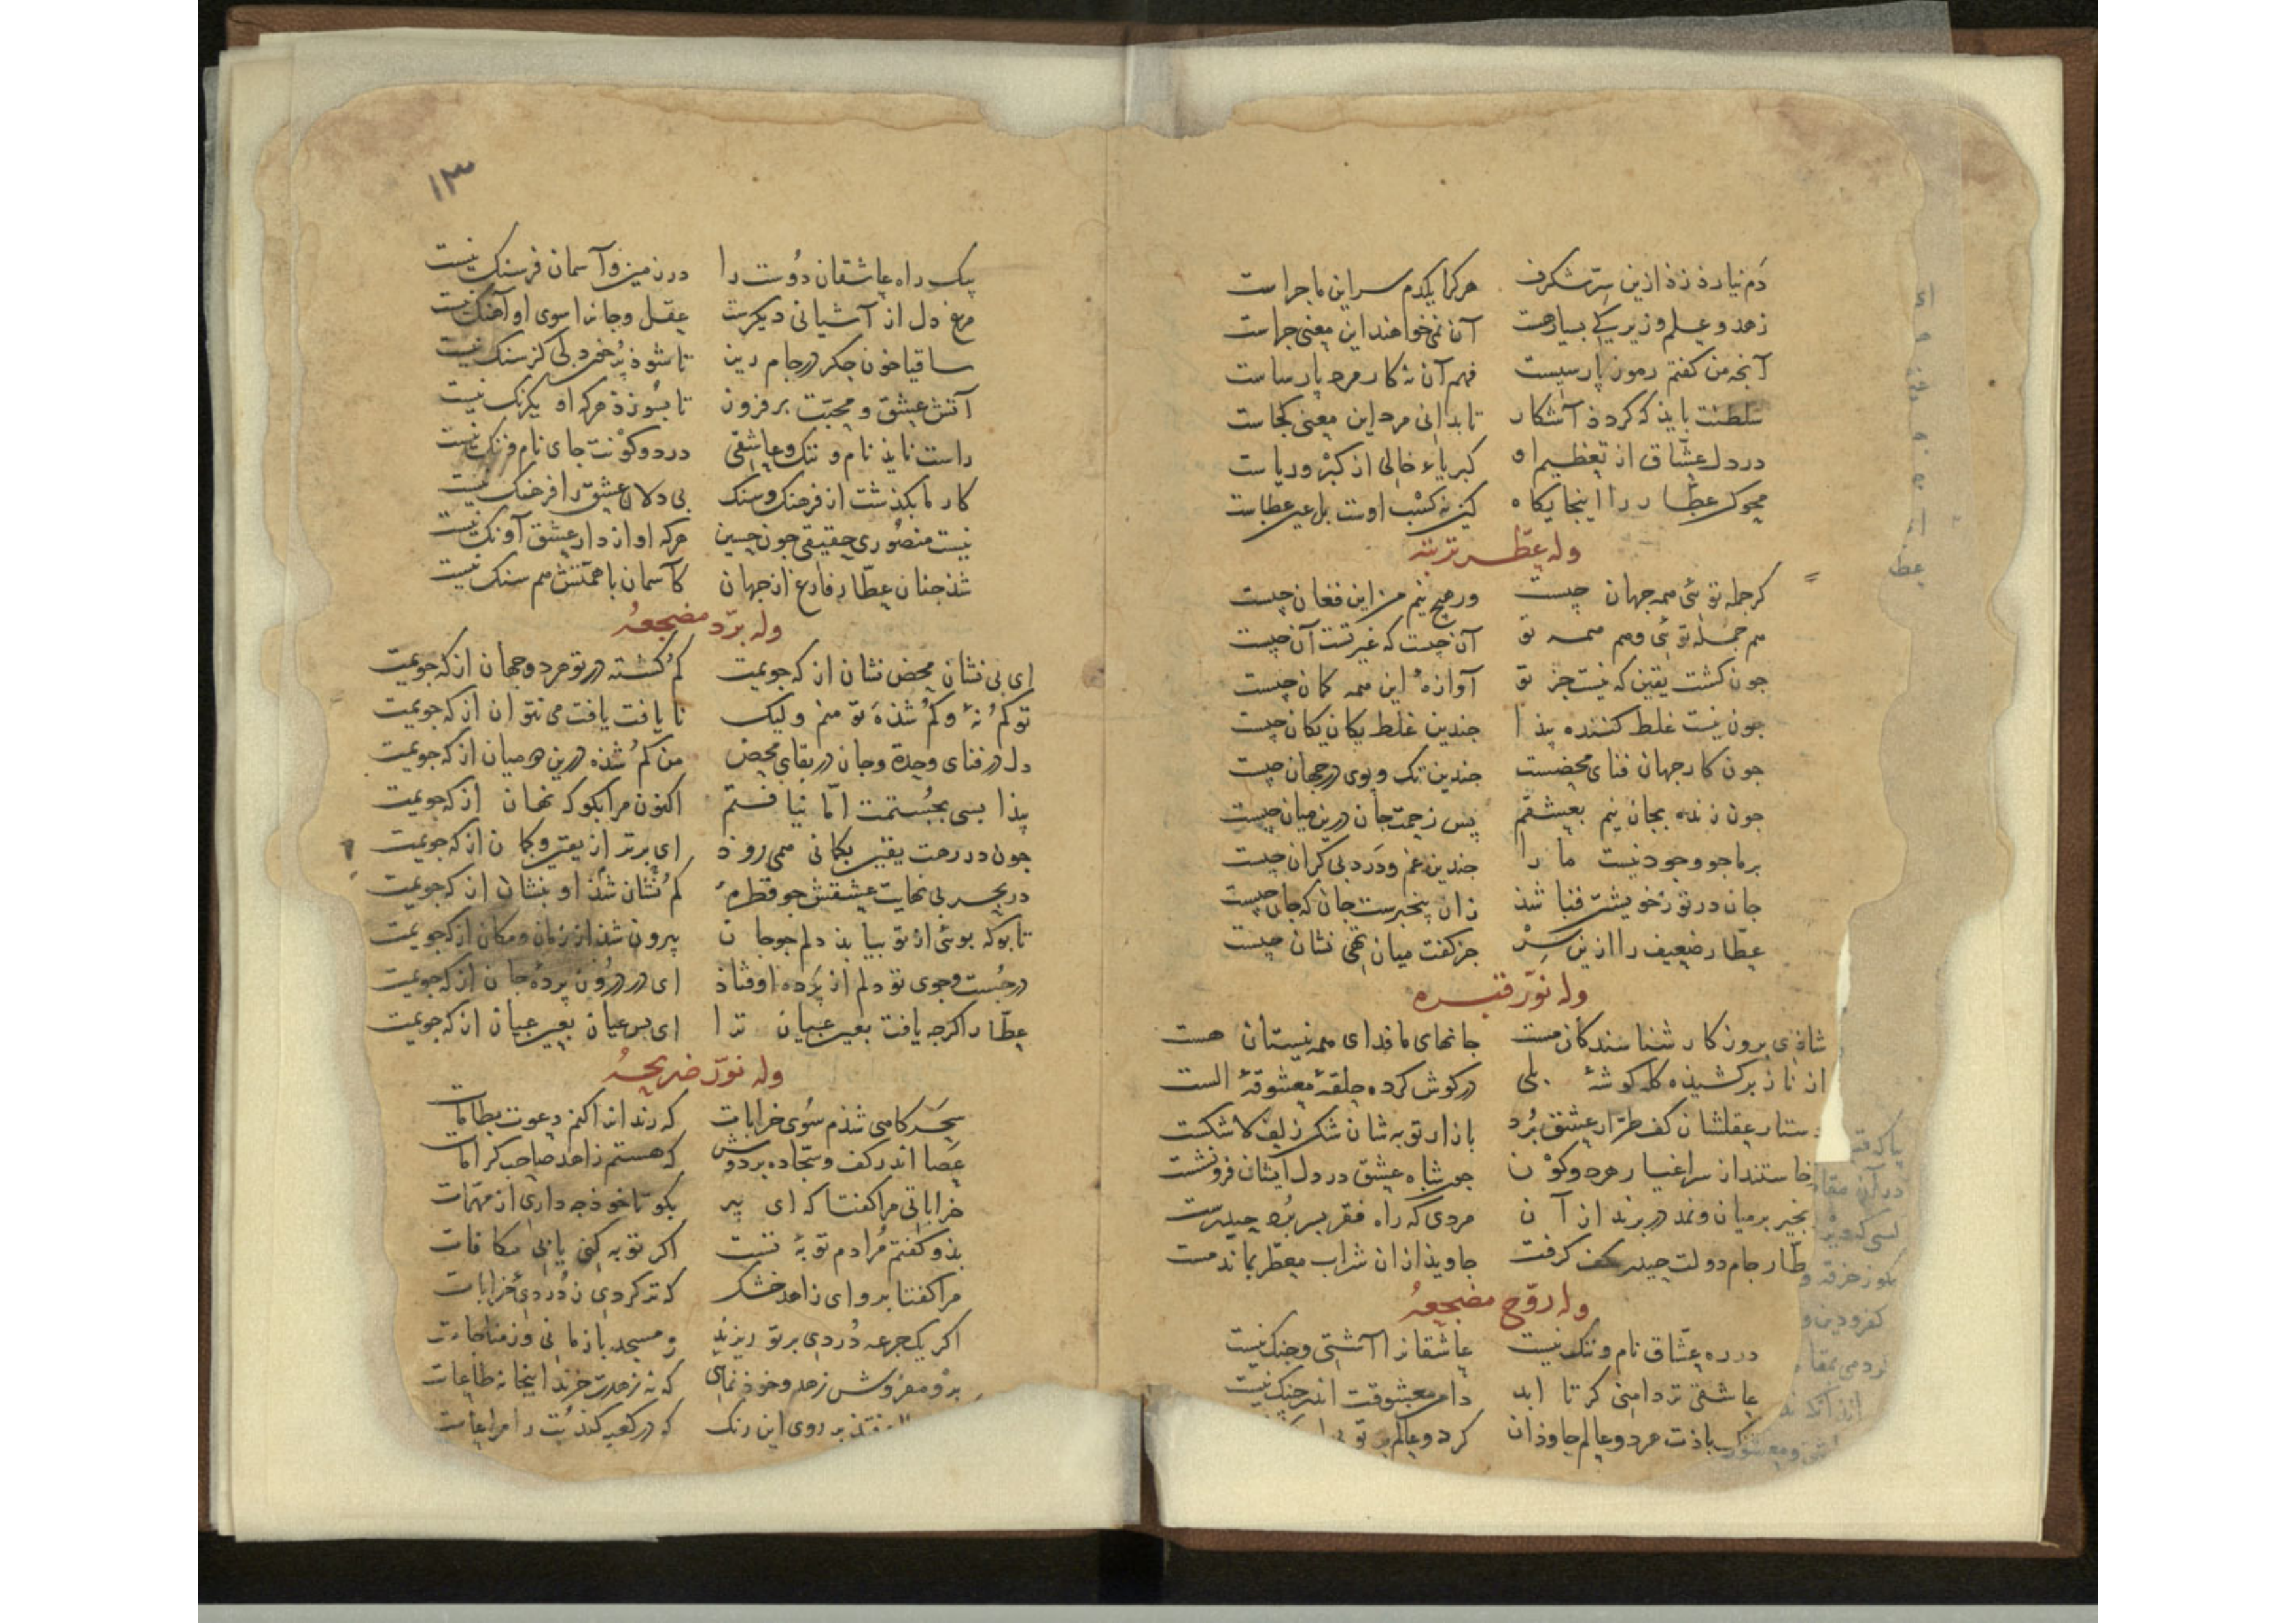 دم نیارد زد ازین سر شکرف هرکرا یکدم سر این ماجراست
زهد و علم و زیرکی بسیار هست آن نمی خواهند این معنی جراست
آنجه من کفتم رموز پارسیست فهم آن نه کار مرد پارساست
سلطنت باید که کردد آشکار تا بدانی مرد این معنی کجاست
در دل عشاق از تعظیم او کبریاء خالی از کبر و ریاست
محو کن عطار را اینجایکاه کین نه کسب اوست بل عین عطاست
وله عطر تربته
کر جمله توئی همه جهان چیست ور هیچ نیم من این فغان چیست
هم جمله توئی و هم همه تو آن چیست که غیر تست آن چیست
جون کشت یقین که نیست جز تو آوازهٔ این همه کمان چیست
جون نیست غلط کننده پیدا جندین غلط یکان یکان چیست
جون کار جهان فنای محضست جندین تک و پوی در جهان چیست
جون زنده بجان نیم بعشقم پس زحمت جان درین میان چیست
برما جو وجود نیست ما را جندین غم و درد بی کران چیست
جان در تو ز خویشتن فنا شد زان بیخبرست جان که جان چیست
عطار ضعیف را ازین سر جز کفت میان تهی نشان چیست
وله نور قبره
شاذی بروزکار شناسندکان مست جانهای ما فدای همه نیستان هست
از ناز برکشیده کله کوشهٔ بلی در کوش کرده حلقهٔ معشوقهٔ الست
دستار عقلشان کف طرار عشق برد بازار توبه شان شکن زلف لا شکست
خاستند از سر اغیار هر دو کون جون شاه عشق در دل ایشان فرو نشست
زنجیر بر میان و نمد در برند از آن مردی که راه فقر بسر برد حیدرست
طار جام دولت حیدر بکف کرفت جاوید از ان شراب معطر بماند مست
وله روح مضجعه
در ره عشاق نام و ننک نیست عاشقانرا آشتی و جنک نیست
عاشقی تردامنی کر تا ابد دامن معشوقت اندر چنک نیست
ننک بادت هر دو عالم جاوذان کر دو عالم بر تو بی
۱۳
پیک راه عاشقان دوست را در زمین و آسمان فرسنک نیست
مرغ دل از آشیانی دیکرست عقل و جانرا سوی او آهنک نیست
ساقیا خون جکر در جام ریز تا شود پر خون دلی کز سنک نیست
آتش عشق و محبت برفروز تا بسوزد هرکه او یکرنک نیست
راست ناید نام و ننک و عاشقی درد دوکونت جای نام و ننک نیست
کار ما بکذشت از فرهنک و سنک بی دلان عشق را فرهنک نیست
نیست منصوری حقیقی جون حسین هرکه او از دار عشق آونک نیست
شد جنان عطار فارغ از جهان کآسمان با همتش هم سنک نیست
وله برد مضجعه
ای بی نشان محض نشان از که جویمت کم کشته در تو هر دو جهان از که جویمت
تو کم نهٔ و کم شدهٔ تو منم ولیک نا یافت یافت می نتوان از که جویمت
دل در فنای وحدة و جان در بقای محض من کم شده درین دو میان از که جویمت
پیدا بسی بجستمت اما نیافتم اکنون مرا بکو که نهان از که جویمت
جون در رهت یقین بکمانی همی رود ای برتر از یقین و کمان از که جویمت
در بحر بی نهایت عشقش جو قطرهٔ کم نشان شد او بنشان از که جویمت
تا بوکه بوئی از تو بیابد دلم جو جان بیرون شد از زمان و مکان از که جویمت
در جست و جوی تو دلم از پرده اوفتاذ ای در درون پردهٔ جان از که جویمت
عطار اکرجه یافت بعین عیان ترا ای بس عیان بعین عیان از که جویمت
وله نور ضریحه
سحرکاهی شدم سوی خرابات که رندانرا کنم دعوت بطامات
عصا اندر کف و سجاده بر دوش که هستم زاهد صاحب کرامات
خراباتی مرا کفتا که ای پیر بکو تا خود جه داری از مهمات
بذو کفتم مرادم توبهٔ تست اکر توبه کنی یابی مکافات
مرا کفتا برو ای زاهد خشک که تر کردی ز دردی خرابات
اکر یک جرعه دردی بر تو ریزند ز مسجد بازمانی وز مناجات
برو مفروش زهد و خود نمای که نه زهدت خرند اینجا نه طاعات
افتد بر روی این رنک که در کعبه کند بت را مراعات